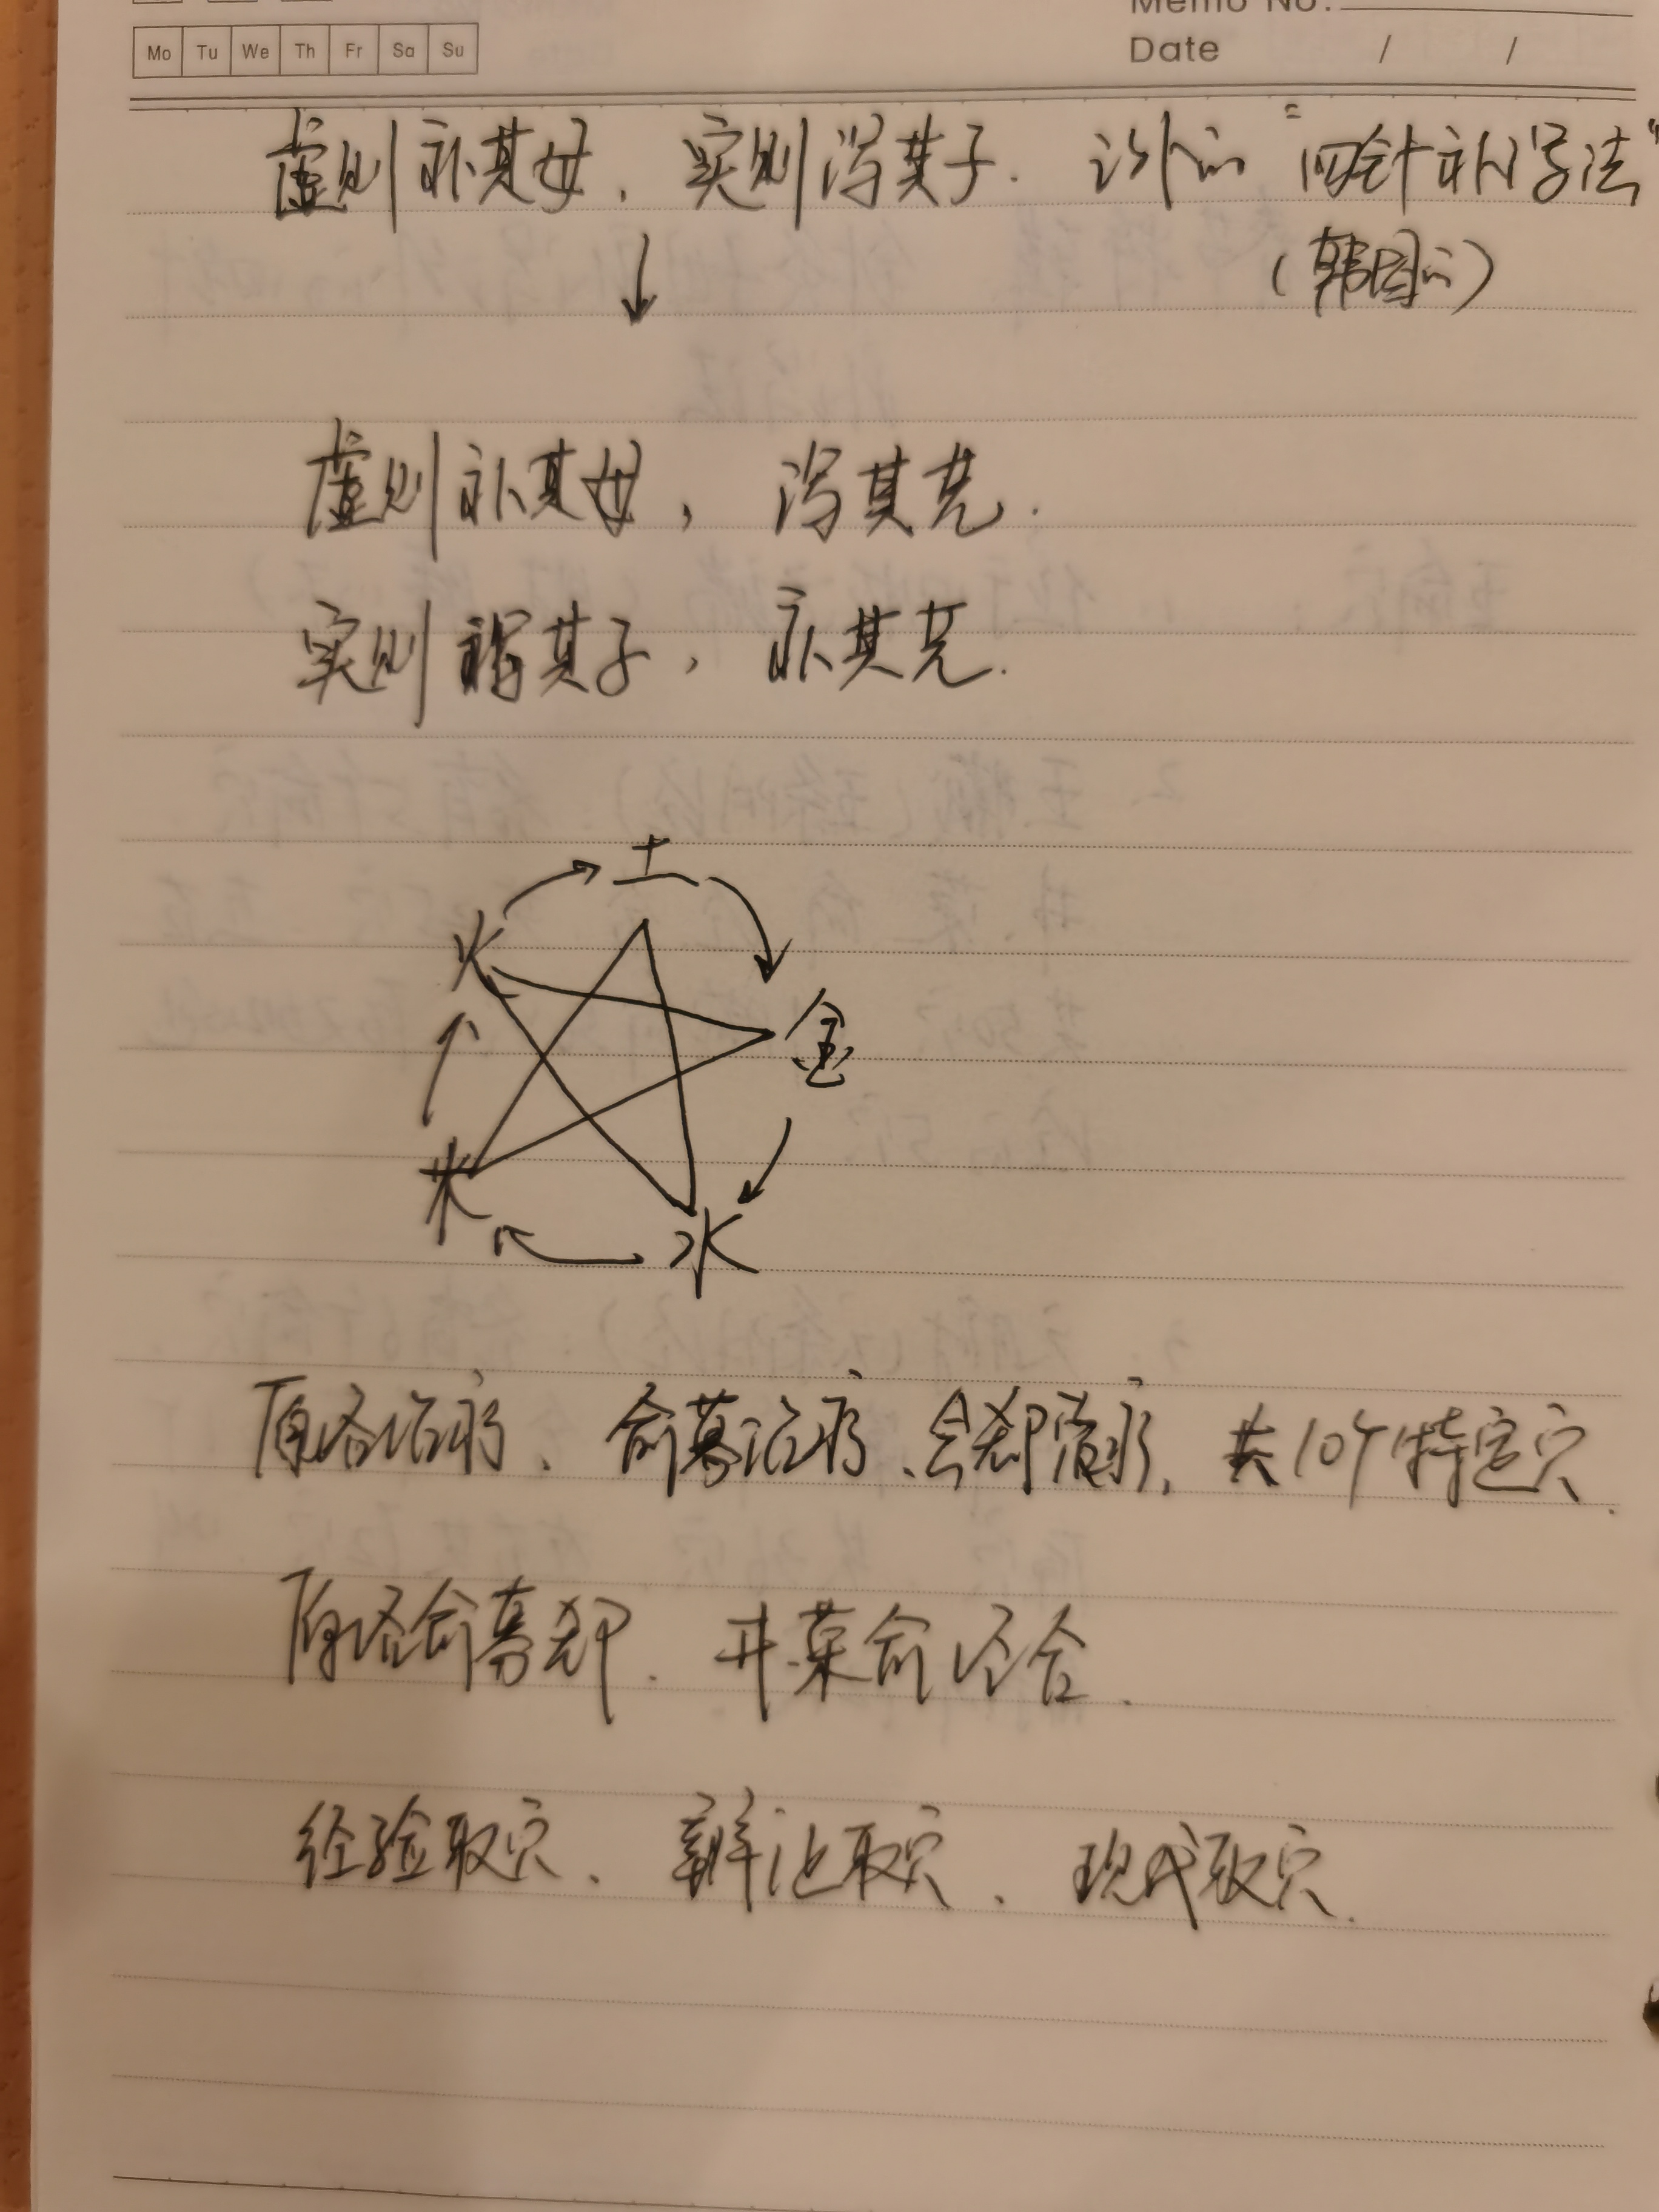 Memo No.:
Mo Tu We Th Fr Sa Su
Date / /
虚则补其母，实则泻其子． 海外的"四针补泻法"
（韩国的）
虚则补其母，泻其克．
实则泻其子，补其克．
土
火
金
木
水
原络治病、俞募治病、合郄治病，共10个特定穴．
原络俞募郄．井荥俞经合．
经验取穴、辩证取穴、现代取穴．